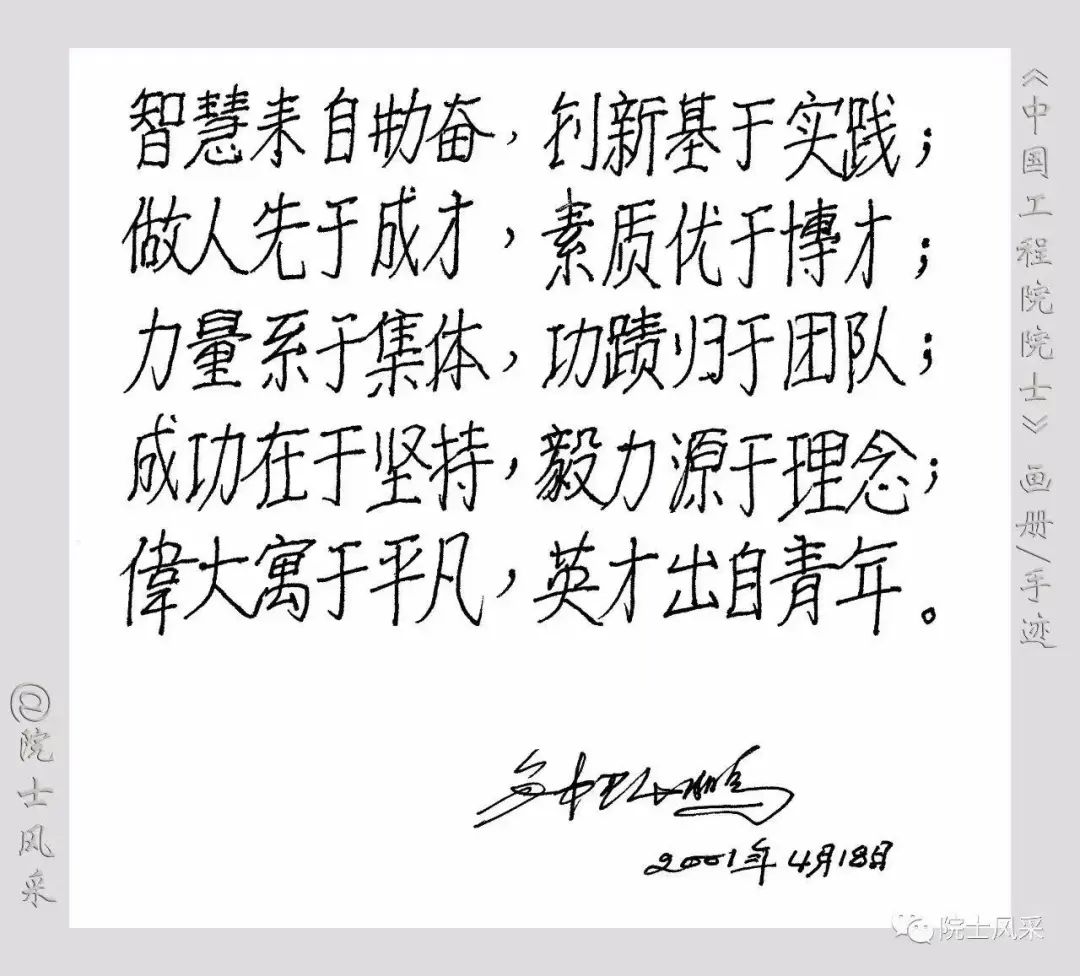 智慧来自勤奋，创新基于实践；
做人先于成才，素质优于博才；
力量系于集体，功蹟归于团队；
成功在于坚持，毅力源于理念；
偉大寓于平凡，英才出自青年。
2001年4月18日
《中国工程院院士》画册/手迹
@院士风采
院士风采